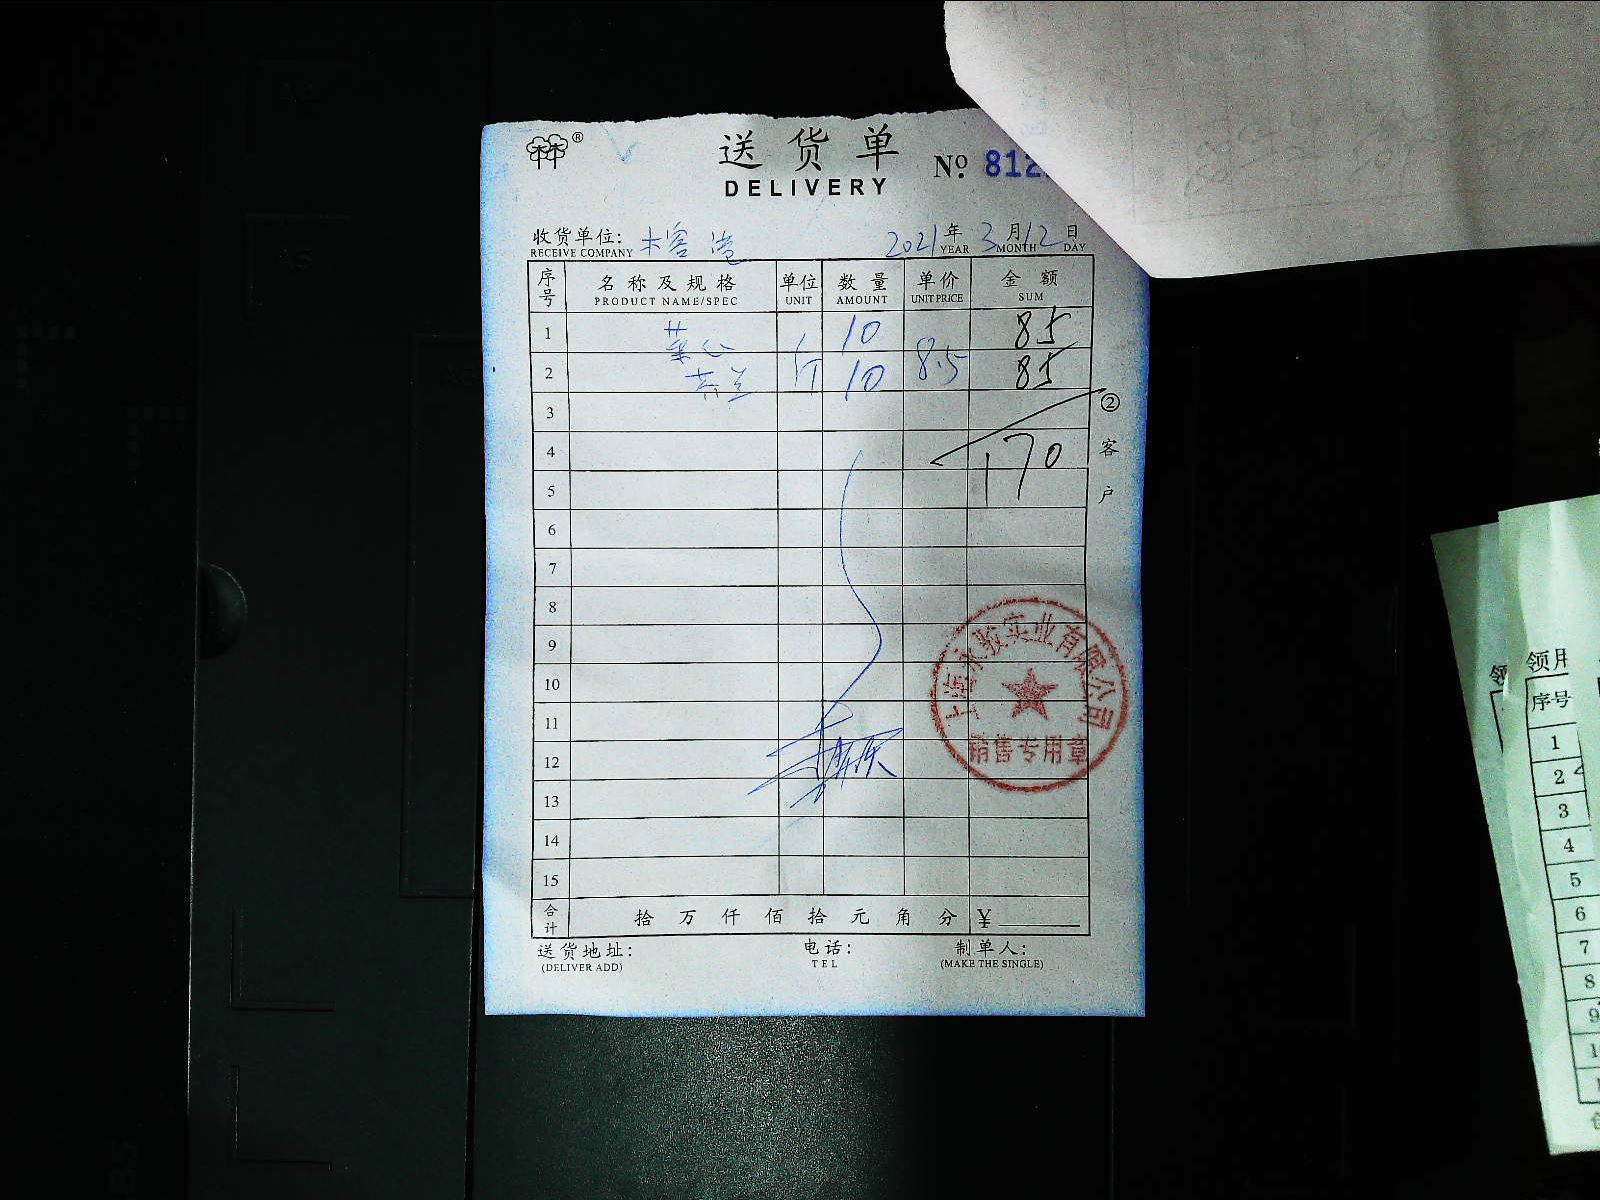 ®
送货单
DELIVERY
No. 812
收货单位: 木客港 2021年3月12日
RECEIVE COMPANY YEAR MONTH DAY
序号 名称及规格 单位 数量 单价 金额
PRODUCT NAME/SPEC UNIT AMOUNT UNIT PRICE SUM
1 菜心 10 85
2 芥兰 斤 10 8.5 85
3
4 170
5
6
7
8
9
10
11
12
13
14
15
② 客户
上海永毅实业有限公司
销售专用章
合计 拾万仟佰拾元角分 ¥
送货地址: 电话: 制单人:
(DELIVER ADD) TEL (MAKE THE SINGLE)
领
领用
序号
1
2
3
4
5
6
7
8
9